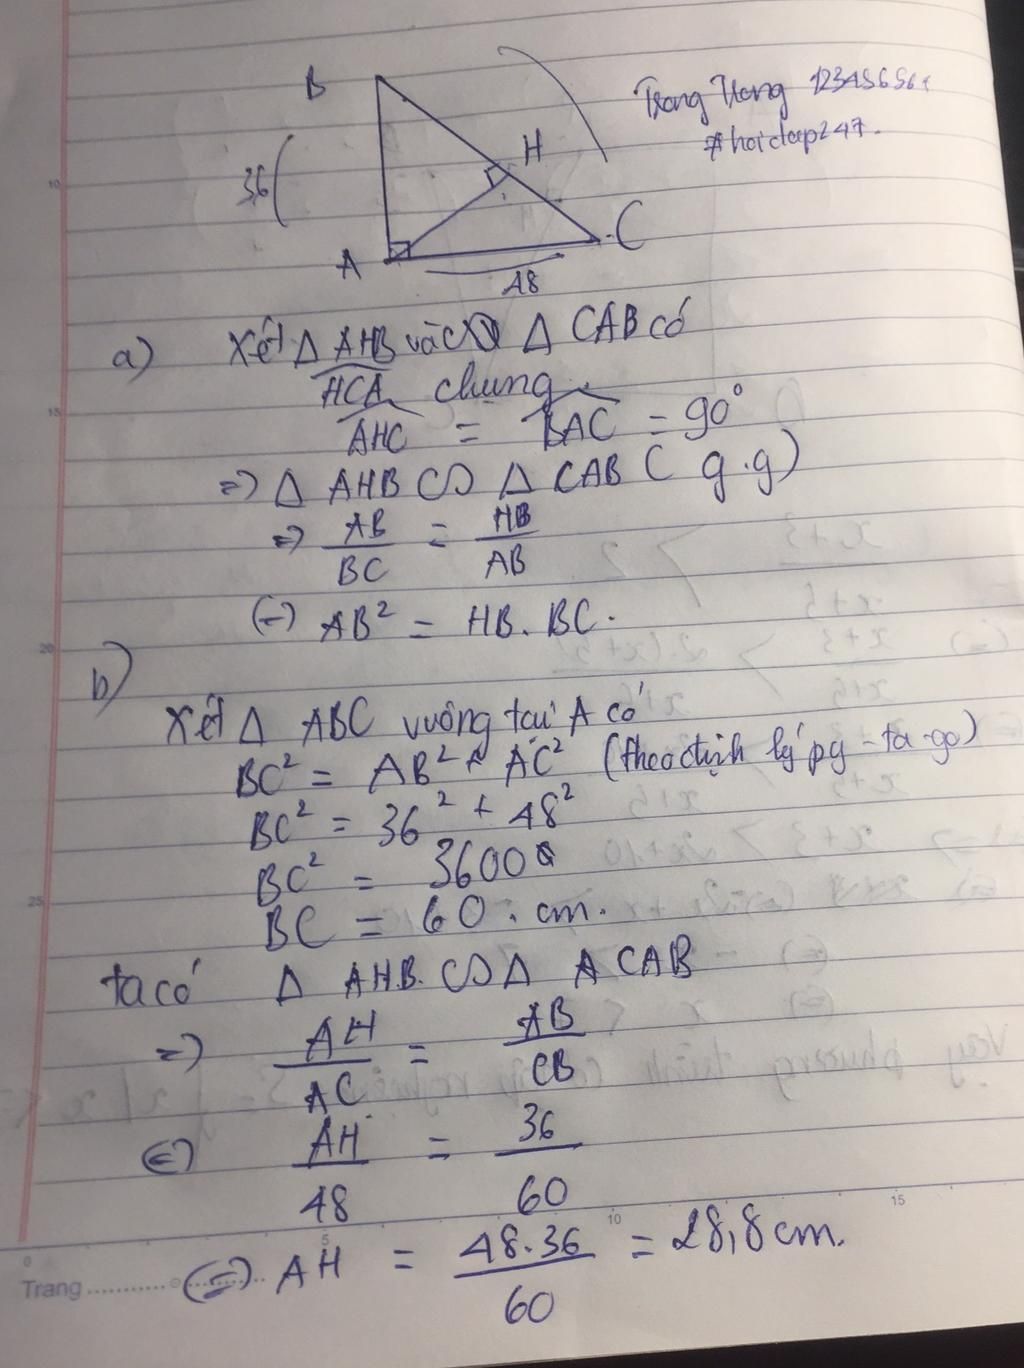 B
Trang Trang 123456561
#hoidap247.
H
36
C
A
48
a) Xét Δ AHB và Δ CAB có
HCA chung
AHC = BAC = 90°
=> Δ AHB ∽ Δ CAB ( g.g)
=> AB/BC = HB/AB
(=) AB² = HB. BC.
b)
Xét Δ ABC vuông tại A có
BC² = AB² + AC² (theo định lý py-ta-go)
BC² = 36² + 48²
BC² = 3600
BC = 60. cm.
ta có Δ AHB. ∽ Δ A CAB
=> AH/AC = AB/CB
(=) AH/48 = 36/60
(=) AH = 48.36/60 = 28,8cm.
Trang
10
15
20
25
0
5
10
15